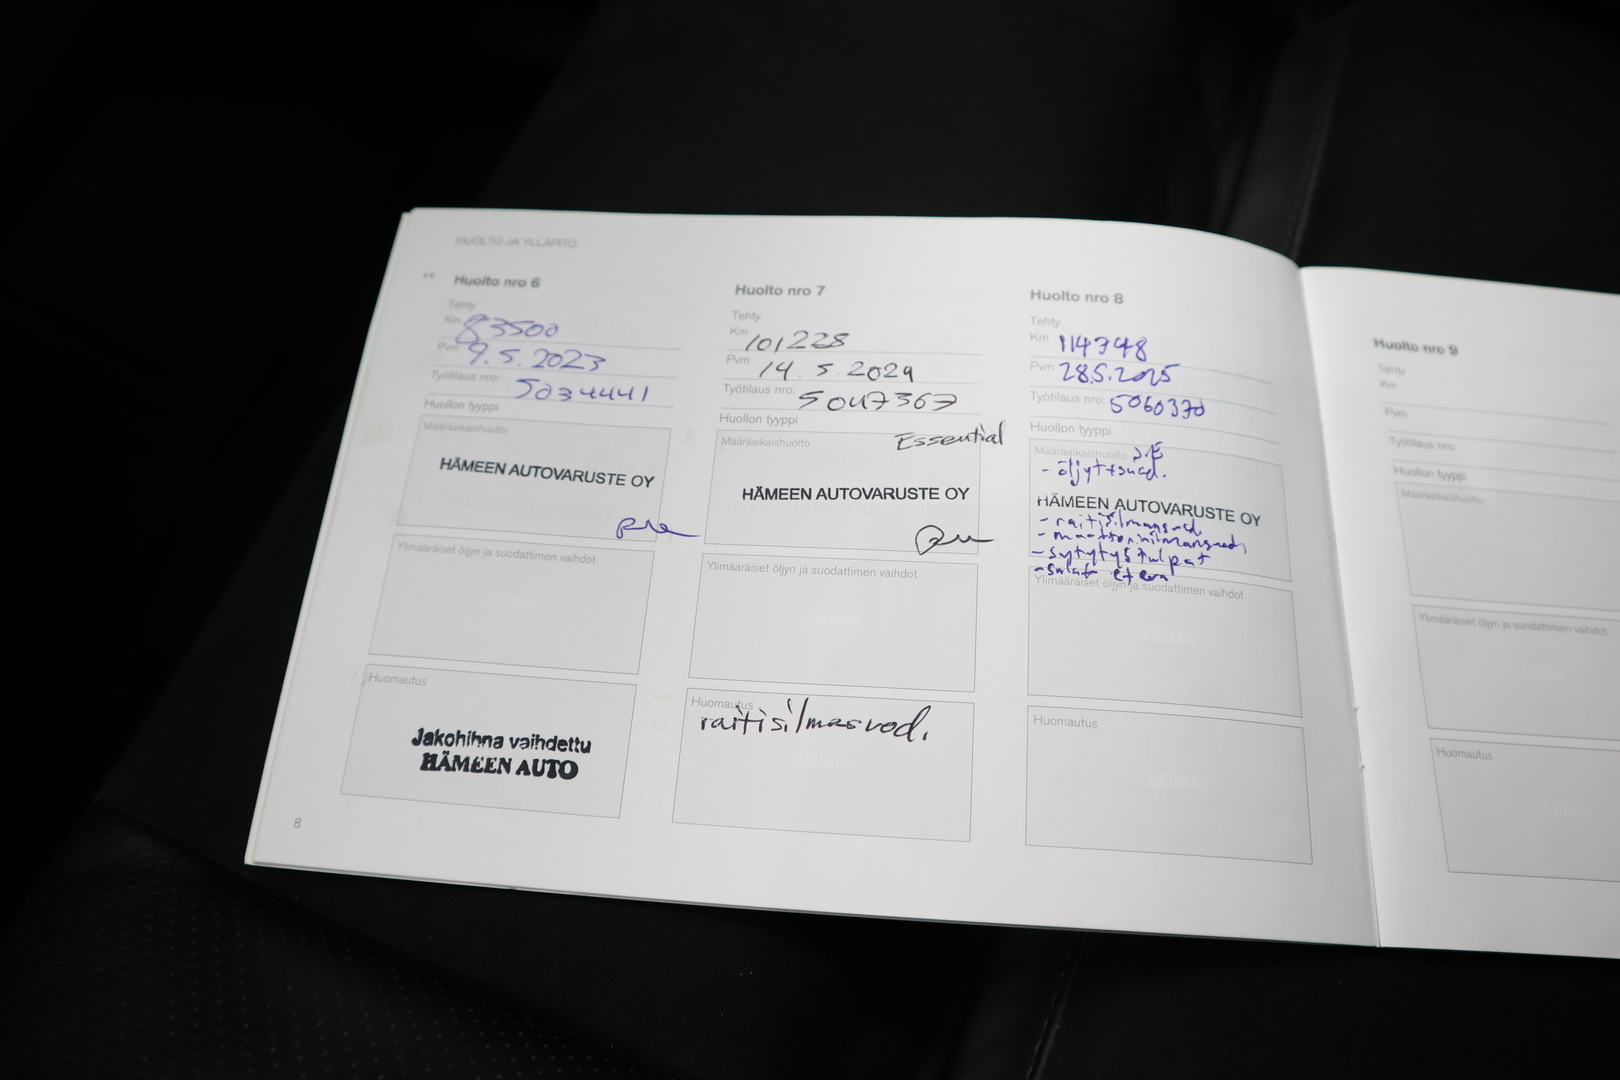 HUOLTO JA YLLÄPITO
Huolto nro 6
Tehty
Km 83500
Pvm 9.5.2023
Työtilaus nro: 5034441
Huollon tyyppi
Määräaikaishuolto
HÄMEEN AUTOVARUSTE OY
Ylimääräiset öljyn ja suodattimen vaihdot
LEIMA
Huomautus
Jakohihna vaihdettu
HÄMEEN AUTO
8
Huolto nro 7
Tehty
Km 101228
Pvm 14.5.2024
Työtilaus nro: 5047367
Huollon tyyppi
Essential
Määräaikaishuolto
HÄMEEN AUTOVARUSTE OY
Ylimääräiset öljyn ja suodattimen vaihdot
LEIMA
Huomautus
raitisilmasuod.
LEIMA
Huolto nro 8
Tehty
Km 114748
Pvm 28.5.2025
Työtilaus nro: 5060370
Huollon tyyppi
Määräaikaishuolto
- öljyt+suod.
HÄMEEN AUTOVARUSTE OY
- raitisilmansuod.
- moottorinilmansuod.
- sytytystulpat
- sulat eteen
Ylimääräiset öljyn ja suodattimen vaihdot
LEIMA
Huomautus
LEIMA
Huolto nro 9
Tehty
Km
Pvm
Työtilaus nro:
Huollon tyyppi
Määräaikaishuolto
Ylimääräiset öljyn ja suodattimen vaihdot
Huomautus